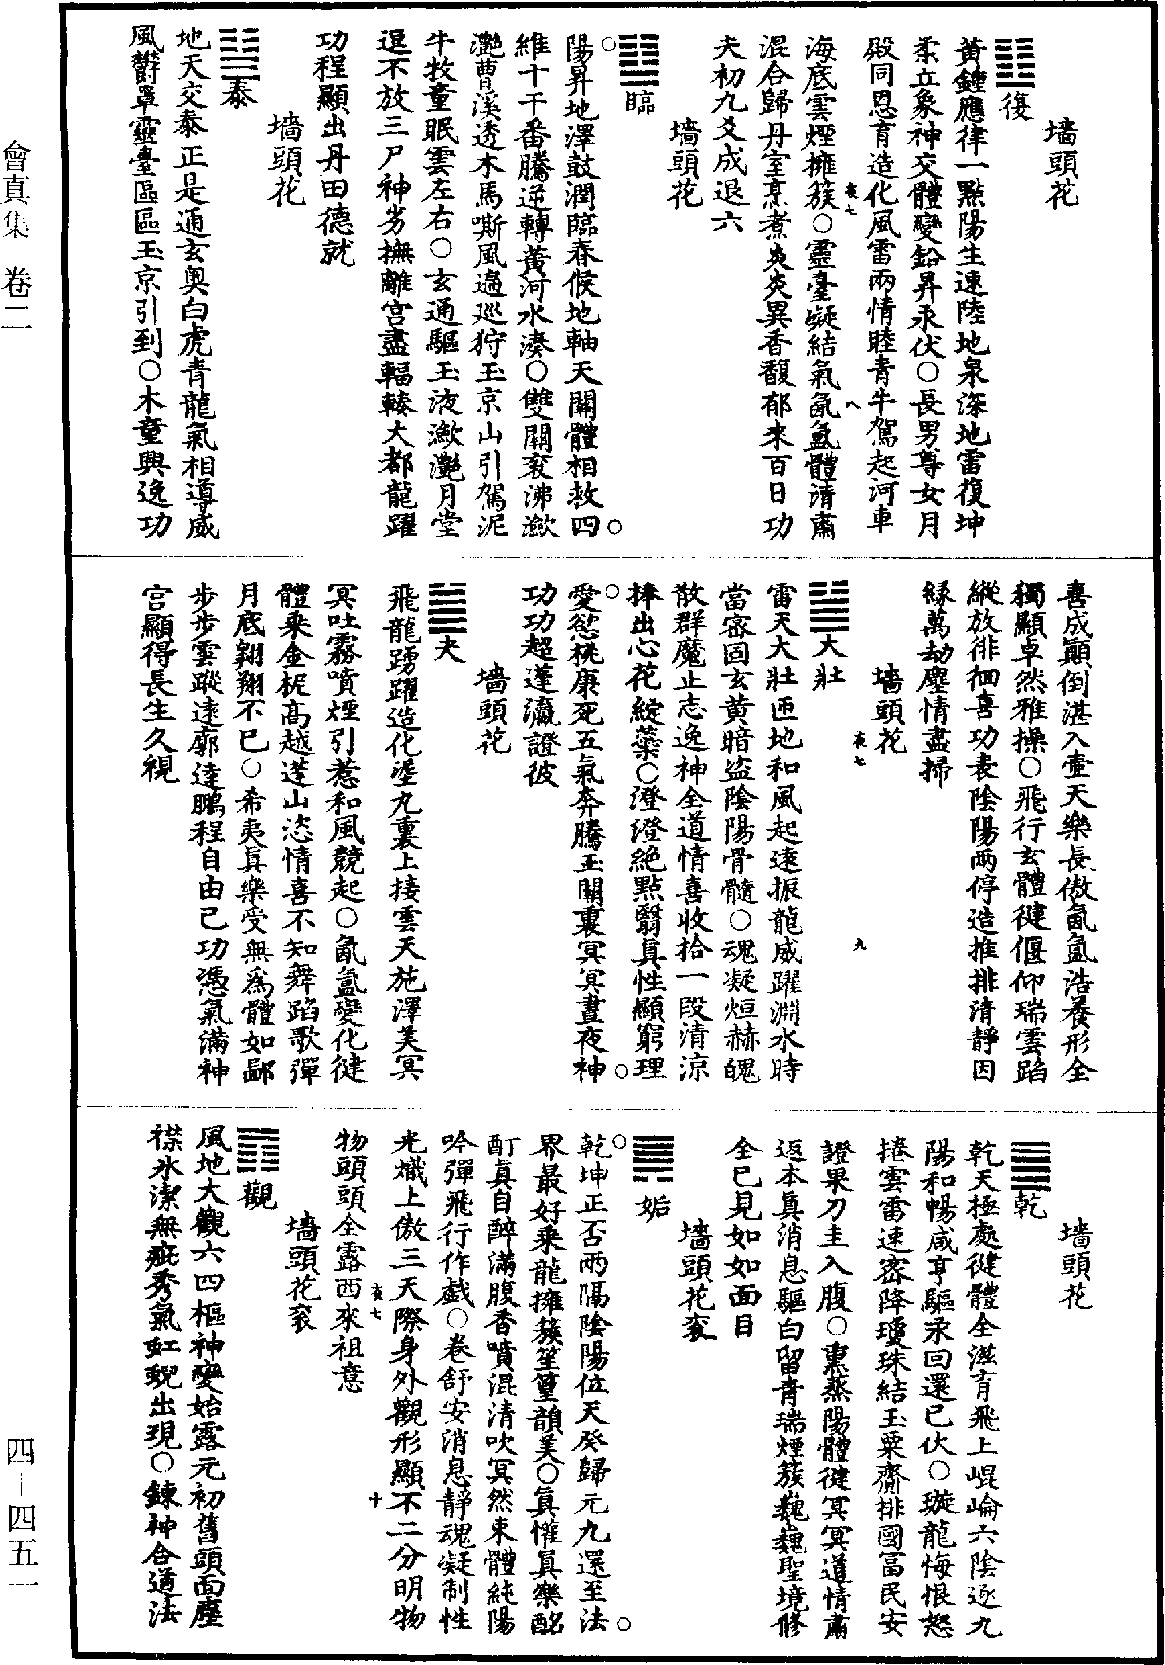 墻頭花
䷗復
黃鐘應律一點陽生速陸地泉深地雷復坤
柔立象神交體變鉛昇汞伏○長男尊女月
殿同恩育造化風雷兩情睦青牛駕起河車
海底雲煙擁簇○靈臺凝結氣氤氳體清肅
混合歸丹室烹煮炎炎異香馥郁來百日功
夫初九爻成退六
墻頭花
䷒臨
陽昇地澤鼓潤臨春候地軸天關體相救四
維十干番騰逆轉黃河水湊○雙關衮沸澉
灔曹溪透木馬嘶風過巡狩玉京山引駕泥
牛牧童眠雲左右○玄通驅玉液澉灔月堂
退不放三尸神劣撫離宫盡輻輳大都龍躍
功程顯出丹田德就
墻頭花
䷊泰
地天交泰正是通玄奥白虎青龍氣相導威
風欝罩靈臺區區玉京引到○木童興逸功
喜成顚倒湛入壷天樂長傲氤氳浩養形全
獨顯卓然雅操○飛行玄體健偃仰瑞雲蹈
縱放徘徊喜功衮陰陽两停造推排清靜因
緣萬劫塵情盡掃
墻頭花
䷡大壯
雷天大壯匝地和風起速振龍威躍淵水時
當宻固玄黄暗盗陰陽骨髓○魂凝烜赫魄
散群魔止志逸神全道情喜收拾一段清涼
捧出心花綻蘂○澄澄絶點翳真性顯窮理
愛慾桃康死五氣奔騰玉關裏冥冥晝夜神
功功超蓬瀛證彼
墻頭花
䷪夬
飛龍踴躍造化逹九裏上接雲天施澤美冥
冥吐霧噴煙引惹和風競起○氤氳變化健
體乗金柅高越蓬山恣情喜不知舞蹈歌彈
月底翱翔不已○希夷真樂受無爲體如鄙
步步雲蹤逺廓逹鵬程自由己功憑氣滿神
宫顯得長生久視
墻頭花
䷀乾
乾天極處健體全滋育飛上崐崘六陰逐九
陽和暢咸亨驅汞回還已伏○璇龍悔恨怒
捲雲雷速宻降瓊珠結玉粟齋排國冨民安
證果刀圭入腹○熏蒸陽體健冥冥道情肅
返本真消息驅白留青瑞煙簇巍巍聖境修
全已見如如面目
墻頭花衮
䷫姤
乾坤正否两隔陰陽位天癸歸元九還至法
界最好乘龍擁簇笙篁韻美○真懽真樂酩
酊真自醉滿腹香噴混清吹冥然東體純陽
吟彈飛行作戱○卷舒安消息靜魂凝制性
光熾上傲三天際身外觀形顯不二分明物
物頭頭全露西來祖意
墻頭花衮
䷓觀
風地大觀六四樞神變始露元初舊頭面塵
襟氷潔無疵秀氣虹蜺出現○鍊神合道法
會真集　卷二
四—四五一